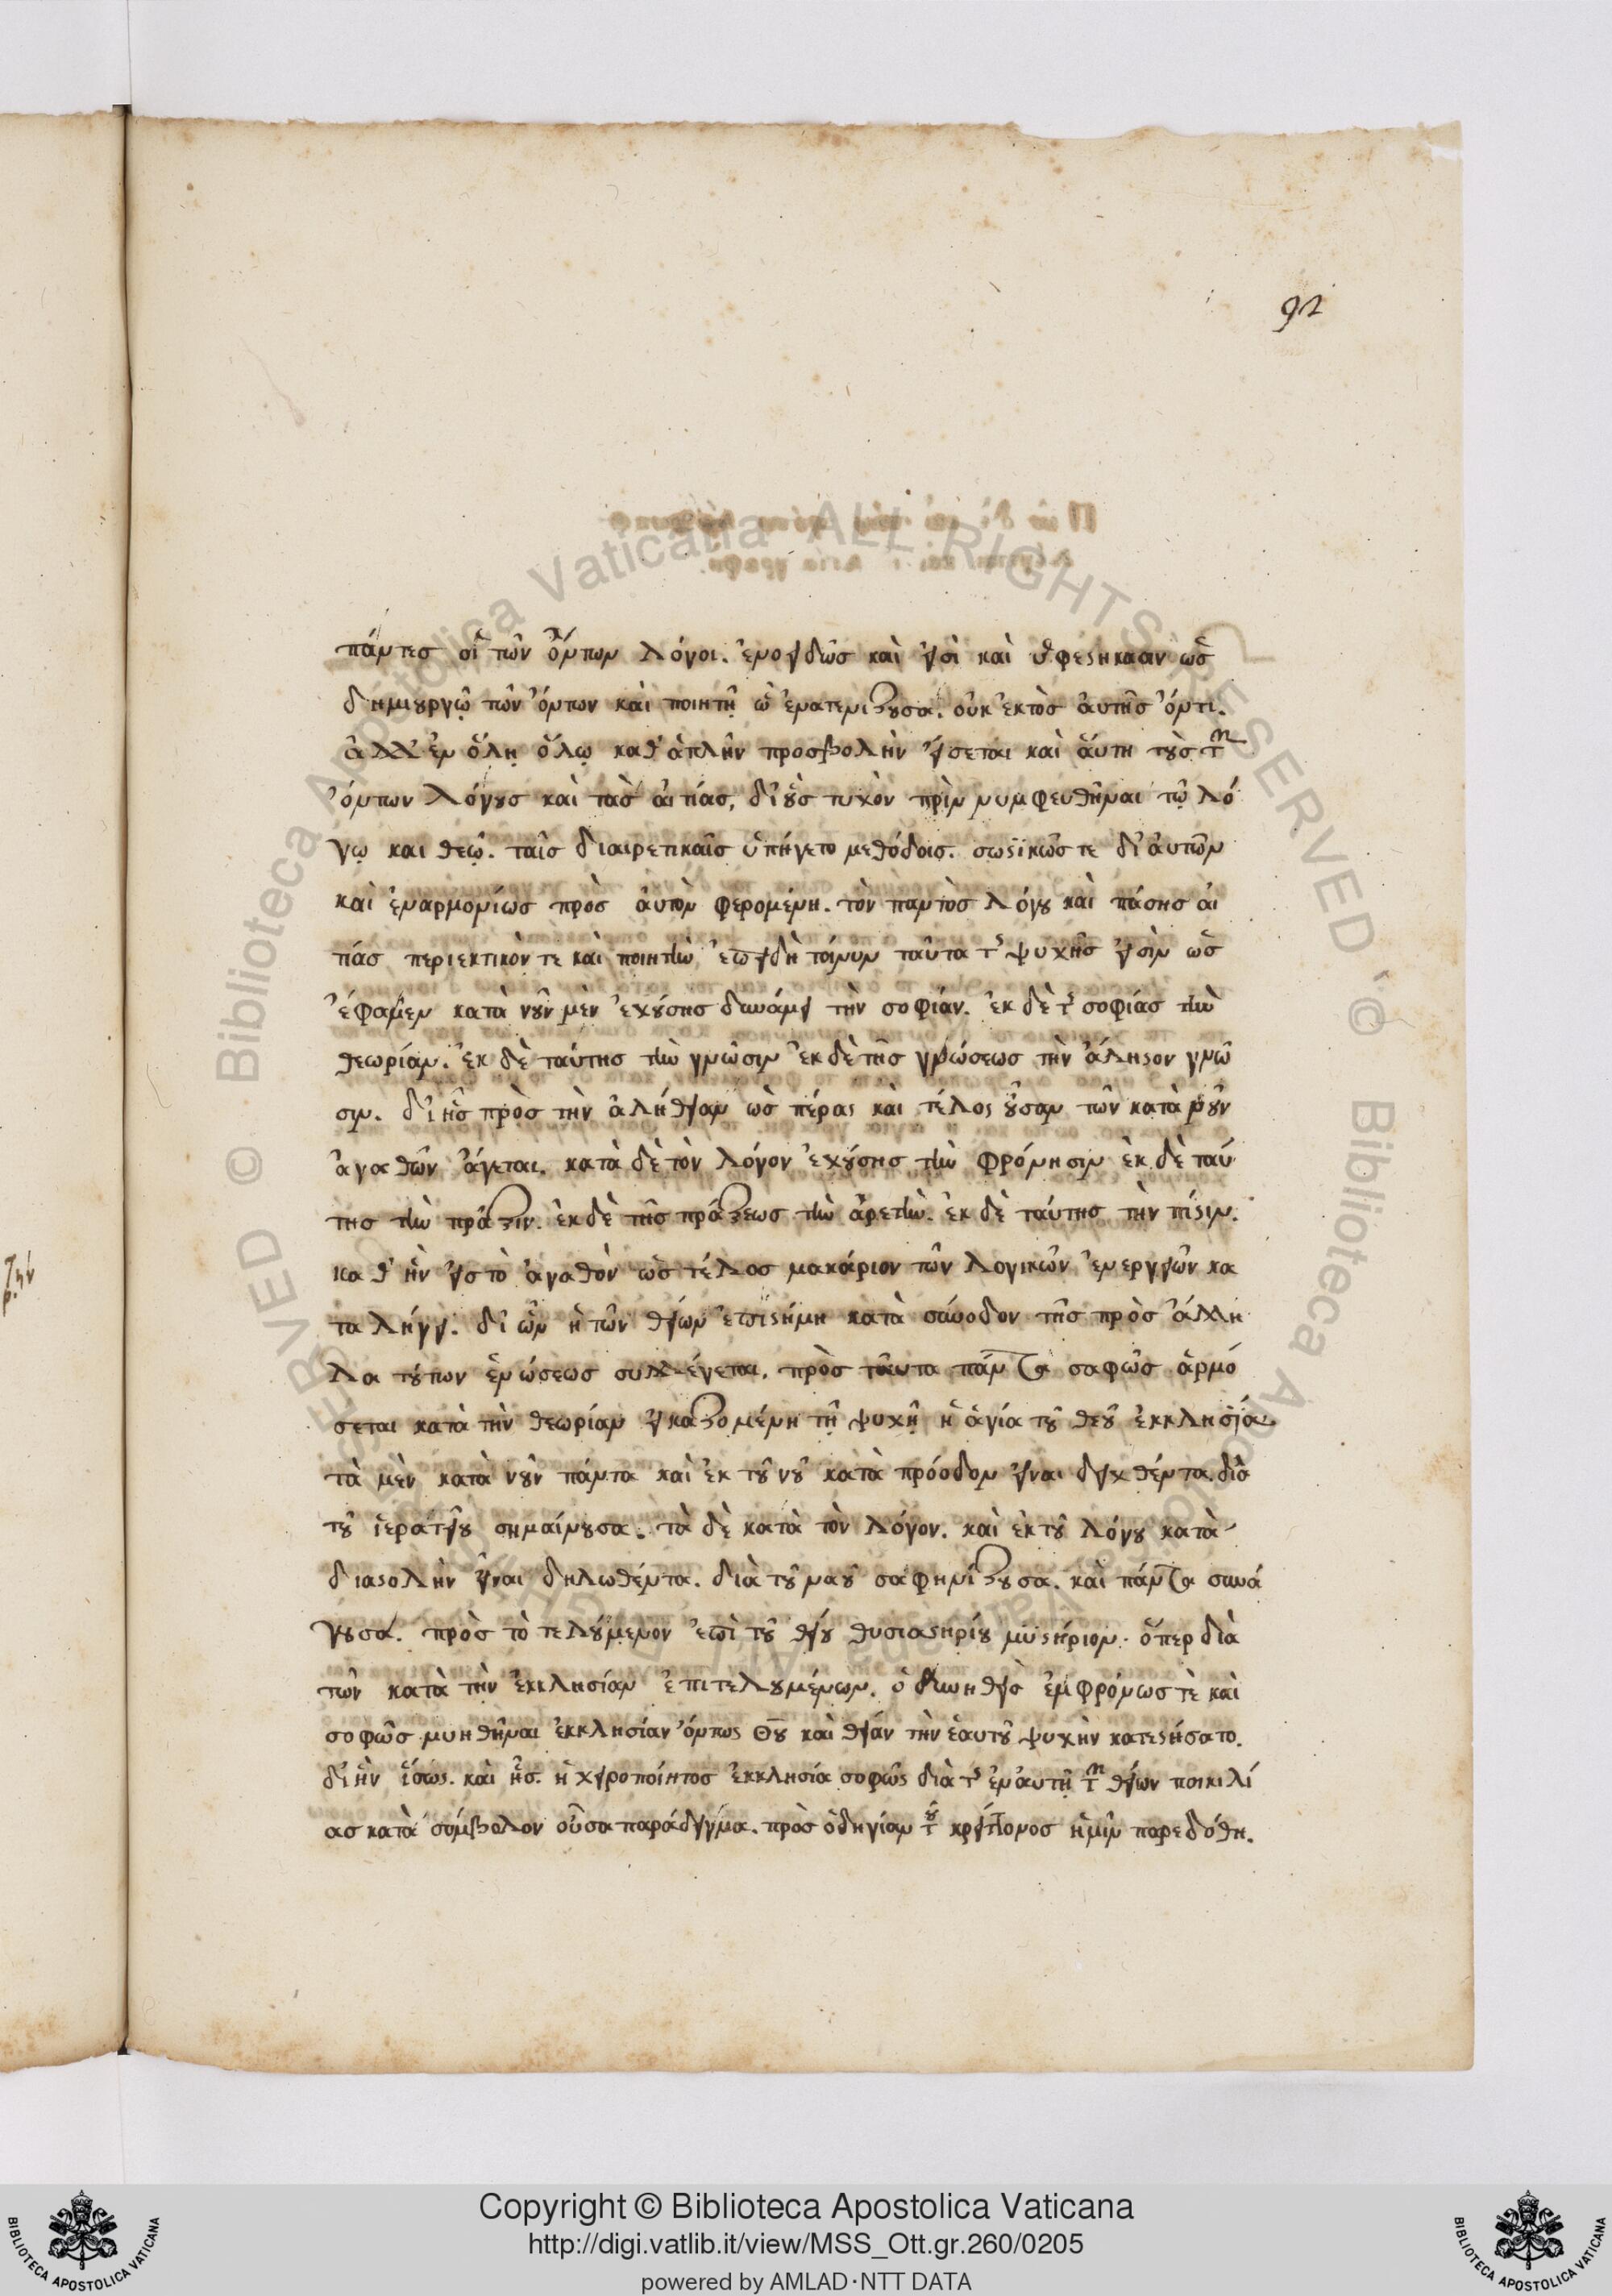 92
πάντες οἱ τῶν ὄντων λόγοι. ἑνοειδῶς καὶ εἰσὶ καὶ ὑφεστήκασιν ὡς
δημιουργῷ τῶν ὄντων καὶ ποιητῇ ᾧ ἐνατενίζουσα. οὐκ ἐκτὸς αὐτῆς ὄντι.
ἀλλ' ἐν ὅλῃ ὅλῳ καθ' ἁπλῆν προσβολὴν εἴσεται καὶ αὕτη τοὺς τῶν
ὄντων λόγους καὶ τὰς αἰτίας, δι' οὓς τυχὸν πρὶν νυμφευθῆναι τῷ λό
γῳ και θεῷ. ταῖς διαιρετικαῖς ὑπήγετο μεθόδοις. σωστικῶς τε δι' αὐτῶν
καὶ ἐναρμονίως πρὸς αὐτὸν φερομένη. τὸν παντὸς λόγου καὶ πάσης αἰ
τίας περιεκτικὸν τε καὶ ποιητὴν ἐπειδὴ τοίνυν ταῦτα τῆς ψυχῆς εἰσὶν ὡς
ἔφαμεν κατὰ νοῦν μὲν ἐχούσης δυνάμει τὴν σοφίαν. ἐκ δὲ τῆς σοφίας τὴν
θεωρίαν. ἐκ δὲ ταύτης τὴν γνῶσιν ἐκ δὲ τῆς γνώσεως τὴν ἄληστον γνῶ
σιν. δι' ἧς πρὸς τὴν ἀλήθειαν ὡς πέρας καὶ τέλος οὖσαν τῶν κατὰ νοῦν
ἀγαθῶν ἄγεται. κατὰ δὲ τὸν λόγον ἐχούσης τὴν φρόνησιν ἐκ δὲ ταύ
της τὴν πρᾶξιν. ἐκ δὲ τῆς πράξεως τὴν ἀρετὴν. ἐκ δὲ ταύτης τὴν πίστιν.
καθ' ἣν εἰς τὸ ἀγαθὸν ὡς τέλος μακάριον τῶν λογικῶν ἐνεργειῶν κα
ταλήγει. δι' ὧν ἡ τῶν θείων ἐπιστήμη κατὰ σύνοδον τῆς πρὸς ἄλλη
λα τούτων ἑνώσεως συλλέγεται. πρὸς ταῦτα πάντα σαφῶς ἁρμό
σεται κατὰ τὴν θεωρίαν εἰκαζομένη τῇ ψυχῇ ἡ ἁγία τοῦ θεοῦ ἐκκλησία
τὰ μὲν κατὰ νοῦν πάντα καὶ ἐκ τοῦ νοῦ κατὰ πρόοδον εἶναι δειχθέντα. διὰ
τοῦ ἱερατείου σημαίνουσα. τὰ δὲ κατὰ τὸν λόγον. καὶ ἐκ τοῦ λόγου κατὰ
διαστολὴν εἶναι δηλωθέντα. διὰ τοῦ ναοῦ σαφηνίζουσα. καὶ πάντα συνά
γουσα. πρὸς τὸ τελούμενον ἐπὶ τοῦ θείου θυσιαστηρίου μυστήριον. ὅπερ διὰ
τῶν κατὰ τὴν ἐκκλησίαν ἐπιτελουμένων. ὁ δυνηθεὶς ἐμφρόνως τὲ καὶ
σοφῶς μυηθῆναι ἐκκλησίαν ὄντως Θῡ καὶ θείαν τὴν ἑαυτοῦ ψυχὴν κατεστήσατο.
δι' ἣν ἴσως. καὶ ἧς. ἡ χειροποίητος ἐκκλησία σοφῶς διὰ τῆς ἐν αὐτῇ τῶν θείων ποικιλί
ας κατὰ σύμβολον οὖσα παράδειγμα. πρὸς ὁδηγίαν τοῦ κρείττονος ἡμῖν παρεδόθη.
Biblioteca Apostolica Vaticana ALL RIGHTS RESERVED ©
Copyright © Biblioteca Apostolica Vaticana
http://digi.vatlib.it/view/MSS_Ott.gr.260/0205
powered by AMLAD·NTT DATA
BIBLIOTECA APOSTOLICA VATICANA
BIBLIOTECA APOSTOLICA VATICANA